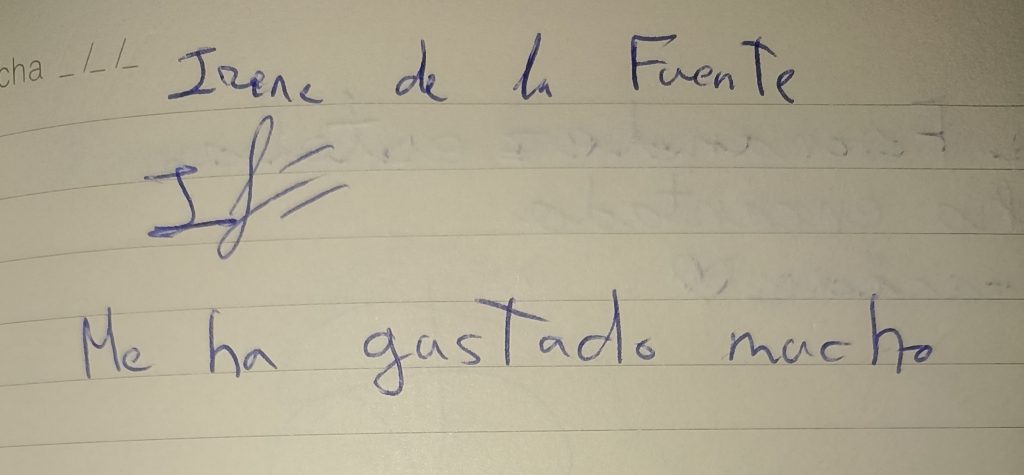 cha _/_/_ Irene de la Fuente
If
Me ha gustado mucho